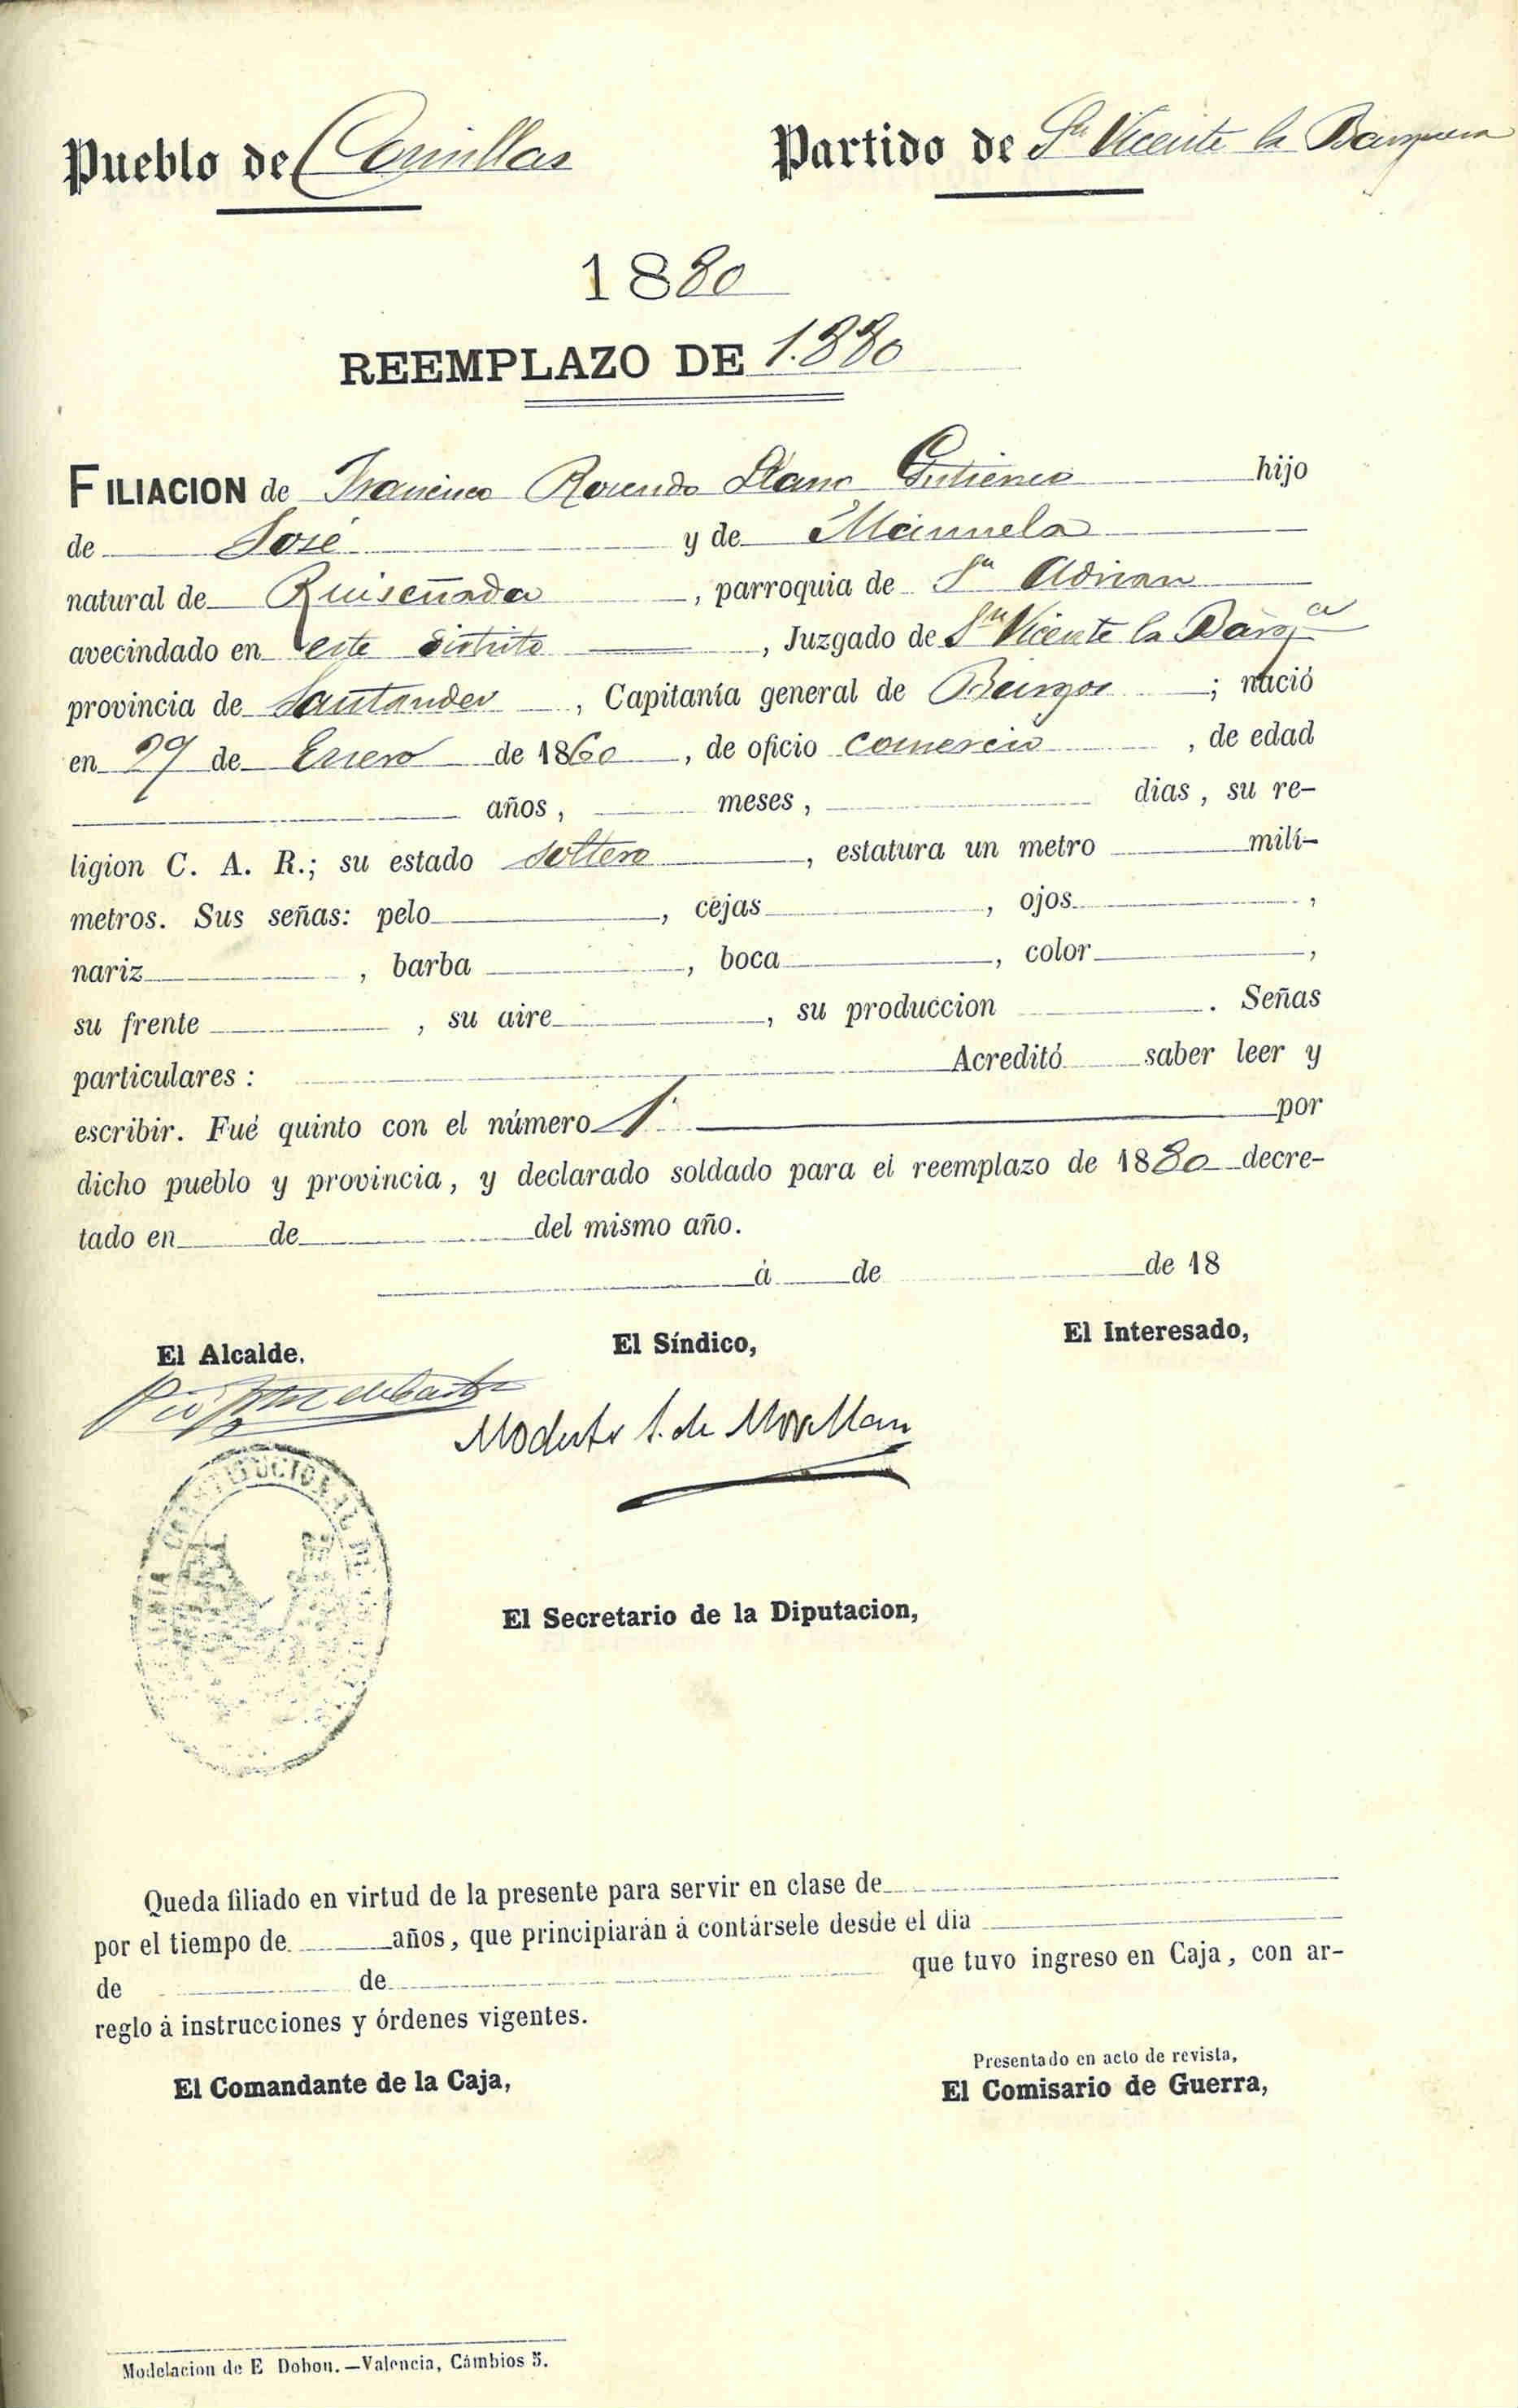 Pueblo de Comillas Partido de Sn Vicente la Barquera
1880
REEMPLAZO DE 1.880
FILIACION de Francisco Rosendo Llano Gutierrez hijo
de José y de Manuela
natural de Ruiseñada, parroquia de Sn Adrian
avecindado en este distrito, Juzgado de Sn Vicente la Barqa
provincia de Santander, Capitanía general de Burgos; nació
en 29 de Enero de 1860, de oficio comercio, de edad
años, meses, dias, su re-
ligion C. A. R.; su estado soltero, estatura un metro milí-
metros. Sus señas: pelo, cejas, ojos,
nariz, barba, boca, color,
su frente, su aire, su produccion. Señas
particulares: Acreditó saber leer y
escribir. Fué quinto con el número 1. por
dicho pueblo y provincia, y declarado soldado para el reemplazo de 1880 decre-
tado en de del mismo año.
á de de 18
El Alcalde. El Síndico, El Interesado,
Modesto S. de Movellan
CONSTITUCIONAL DE
El Secretario de la Diputacion,
Queda filiado en virtud de la presente para servir en clase de
por el tiempo de años, que principiarán á contársele desde el dia
de de que tuvo ingreso en Caja, con ar-
reglo á instrucciones y órdenes vigentes.
Presentado en acto de revista,
El Comandante de la Caja, El Comisario de Guerra,
Modelacion de E Dobon.—Valencia, Cámbios 5.